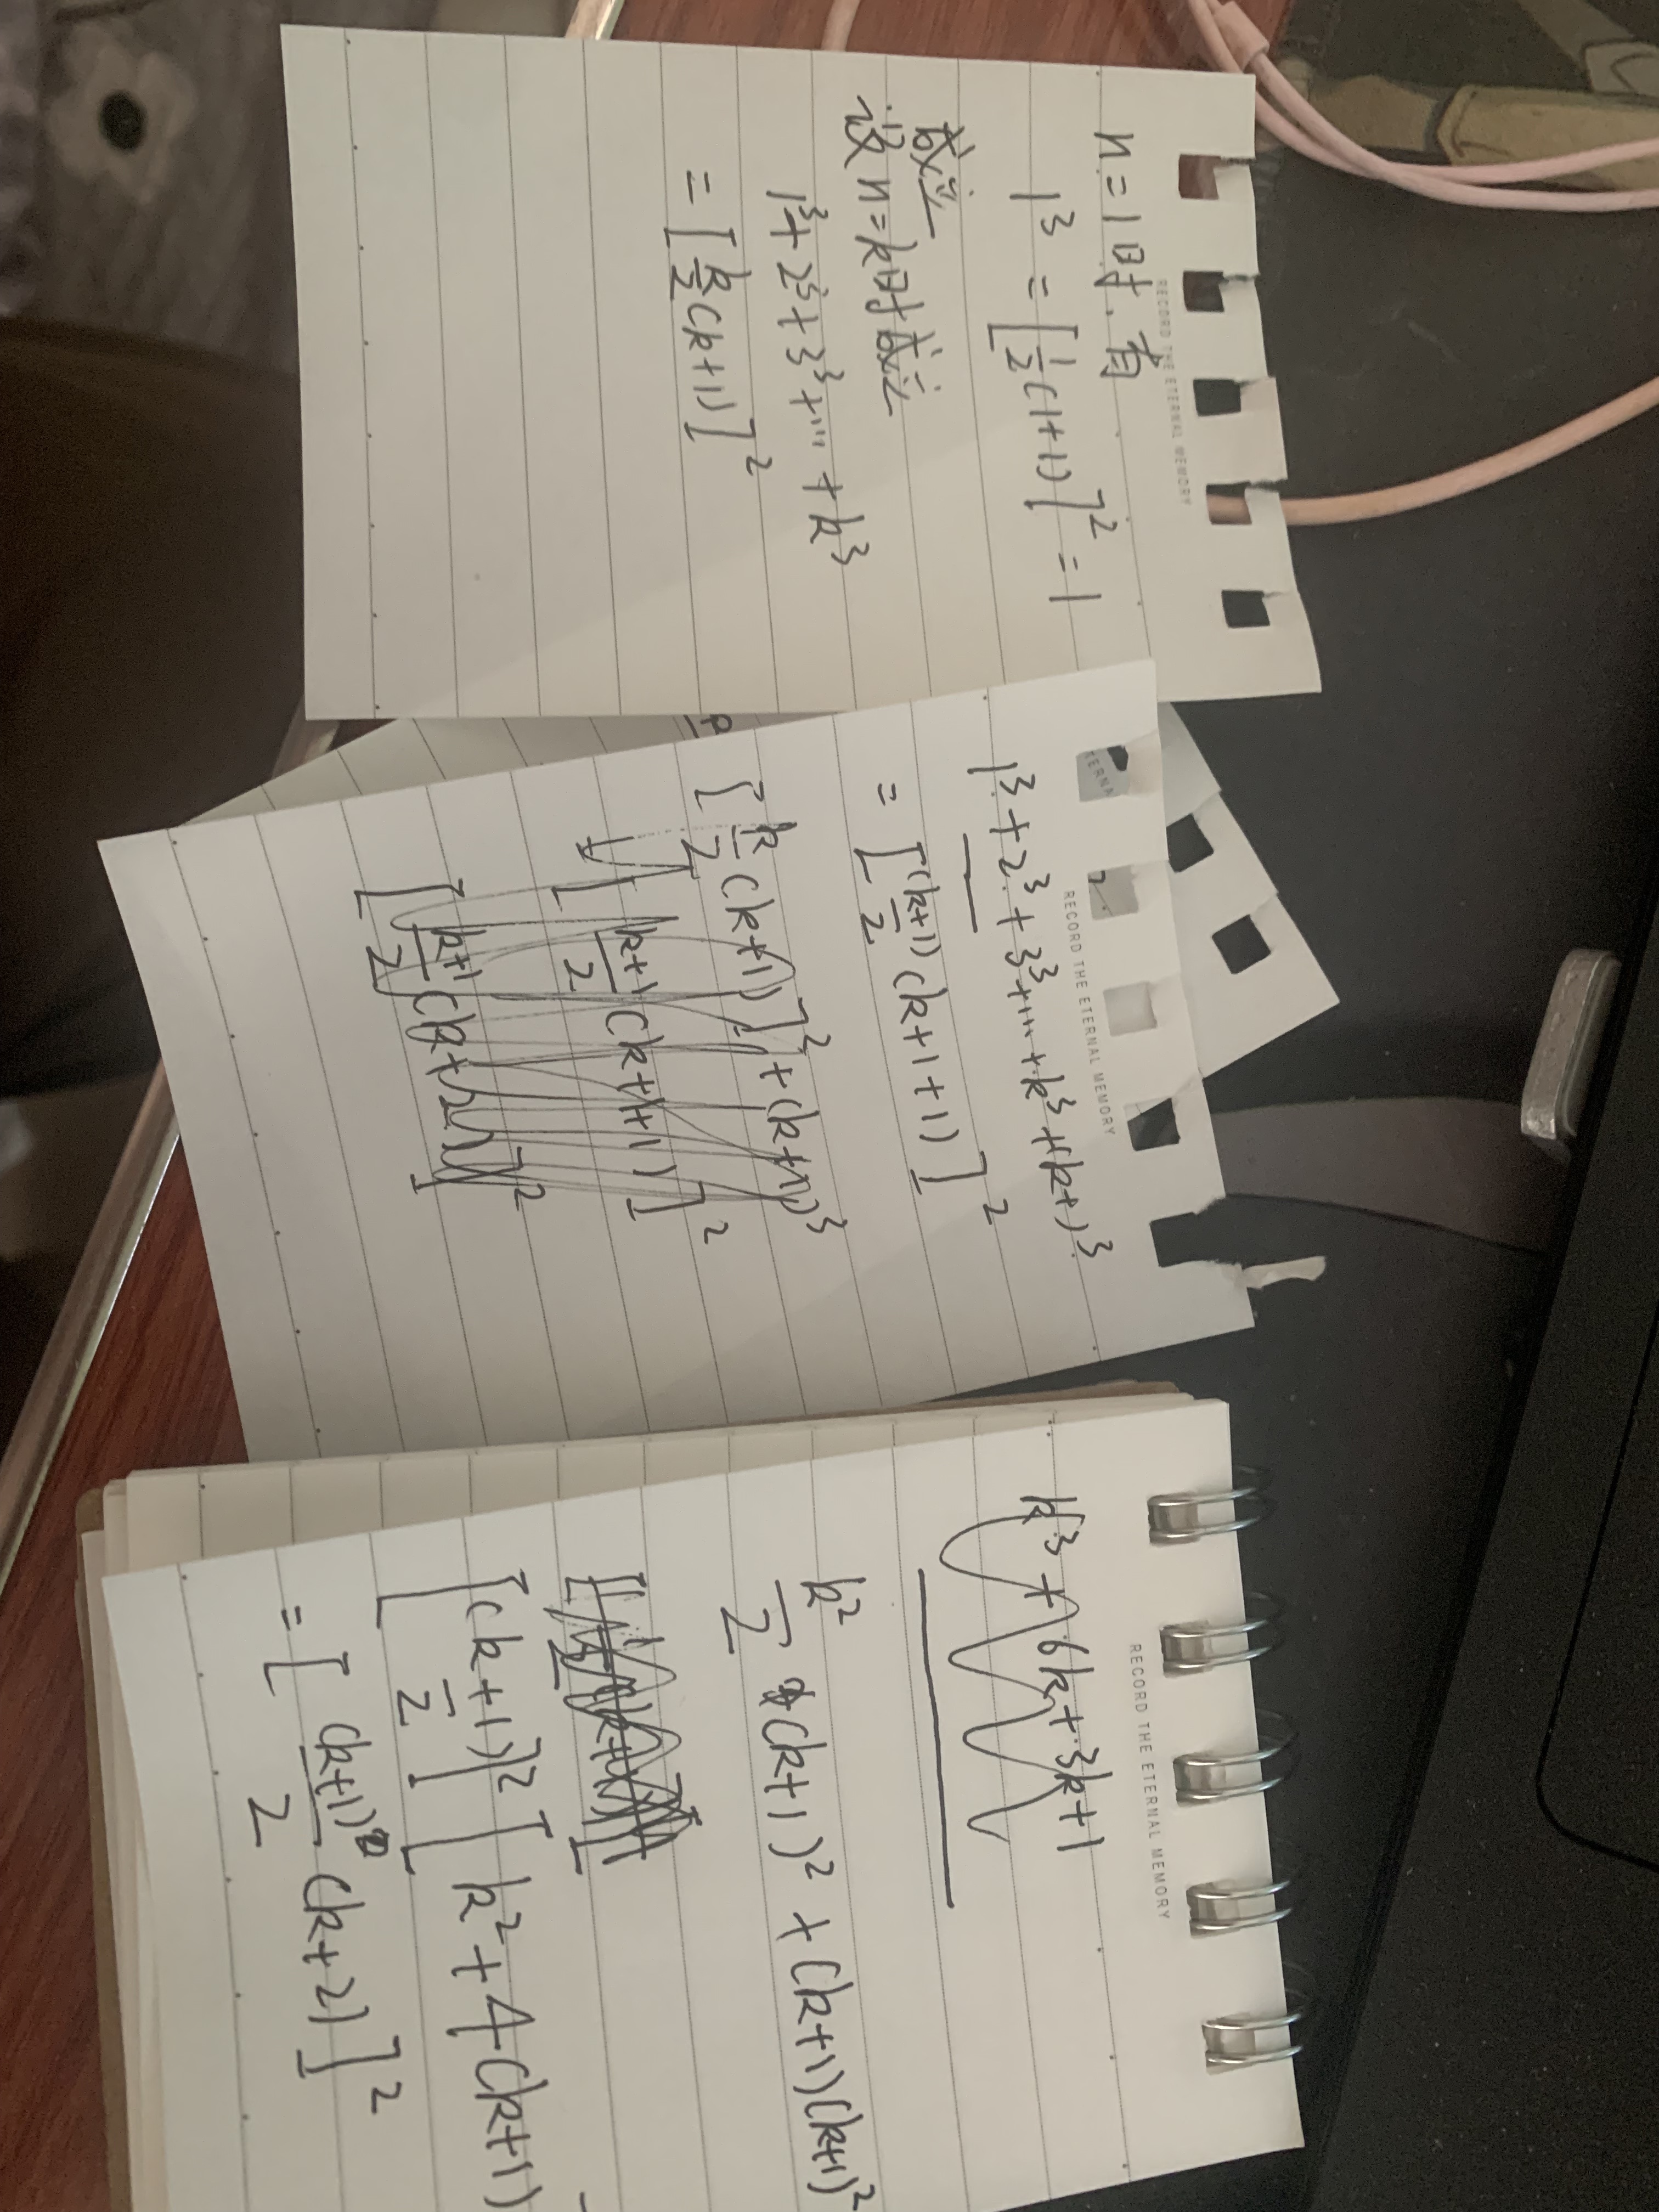 RECORD THE ETERNAL MEMORY
n=1时,有
1³ = [1/2(1+1)]² = 1
成立
设n=k时成立
1³+2³+3³+...+k³
= [k/2(k+1)]²
RECORD THE ETERNAL MEMORY
1³+2³+3³+...+k³+(k+1)³
= [(k+1)/2 (k+1+1)]²
[k/2(k+1)]²+(k+1)³
[k+1/2(k+1+1)]²
[k+1/2(k+2)]²
RECORD THE ETERNAL MEMORY
k³+6k+3k+1
k²/2 (k+1)² + (k+1)(k+1)²
[(k+1)/2]² [k²+4(k+1)
= [(k+1)/2 (k+2)]²